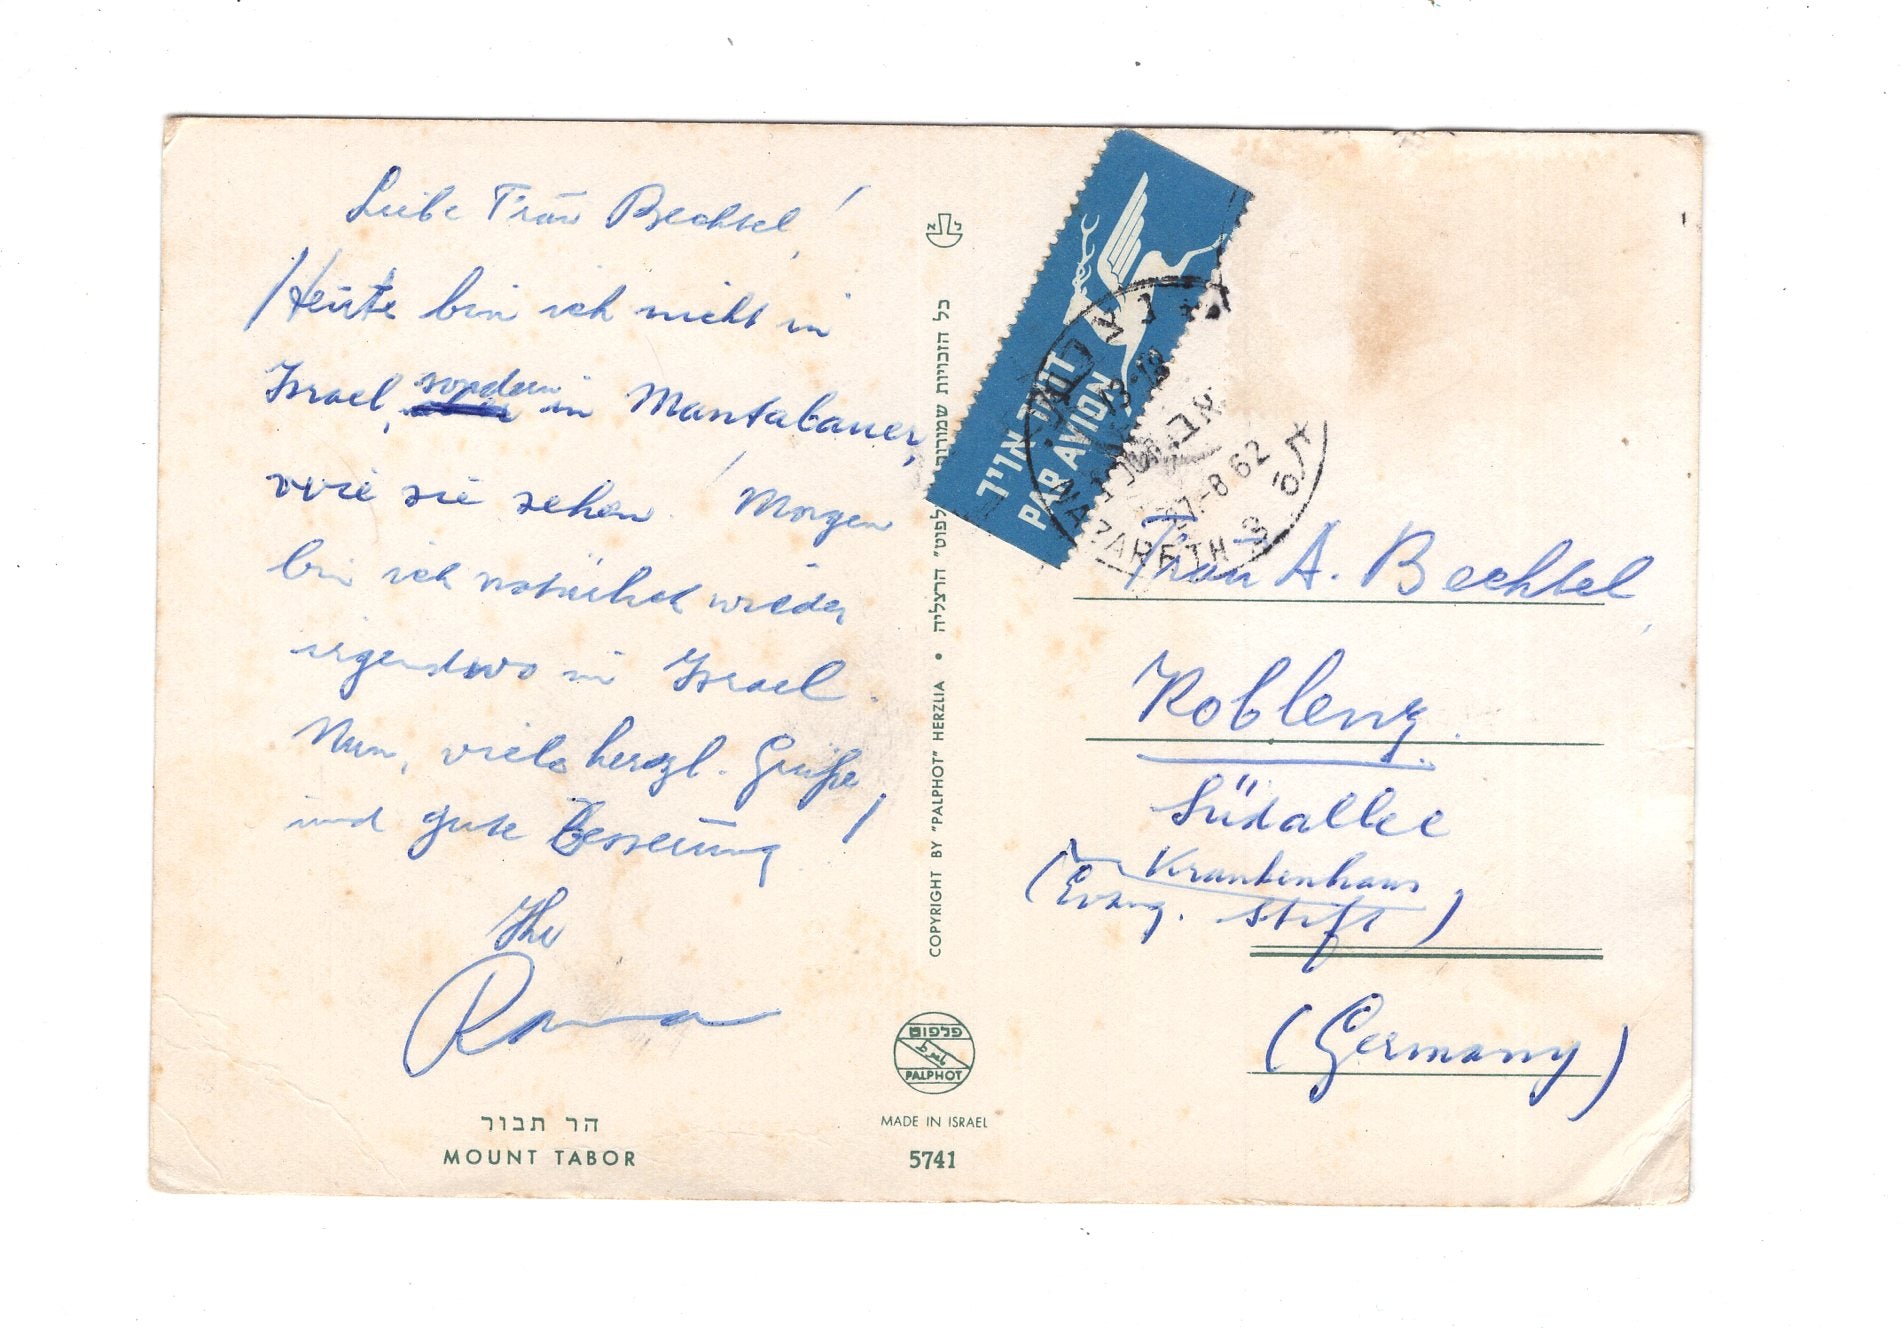 Liebe Frau Bechtel!
Heute bin ich nicht in
Israel, sondern in Montabauer,
wie sie sehen. Morgen
bin ich natürlich wieder
irgendwo in Israel.
Nun, viele herzl. Grüße,
und gute Besserung!
Ihr
הר תבור
MOUNT TABOR
כל הזכויות שמורות
לפוט" הרצליה
COPYRIGHT BY "PALPHOT" HERZLIA
פלפוט
PALPHOT
MADE IN ISRAEL
5741
דואר אויר
PAR AVION
27-8 62
NAZARETH
Frau A. Bechtel,
Koblenz.
Südallee
Krankenhaus
(Evang. Stift)
(Germany)